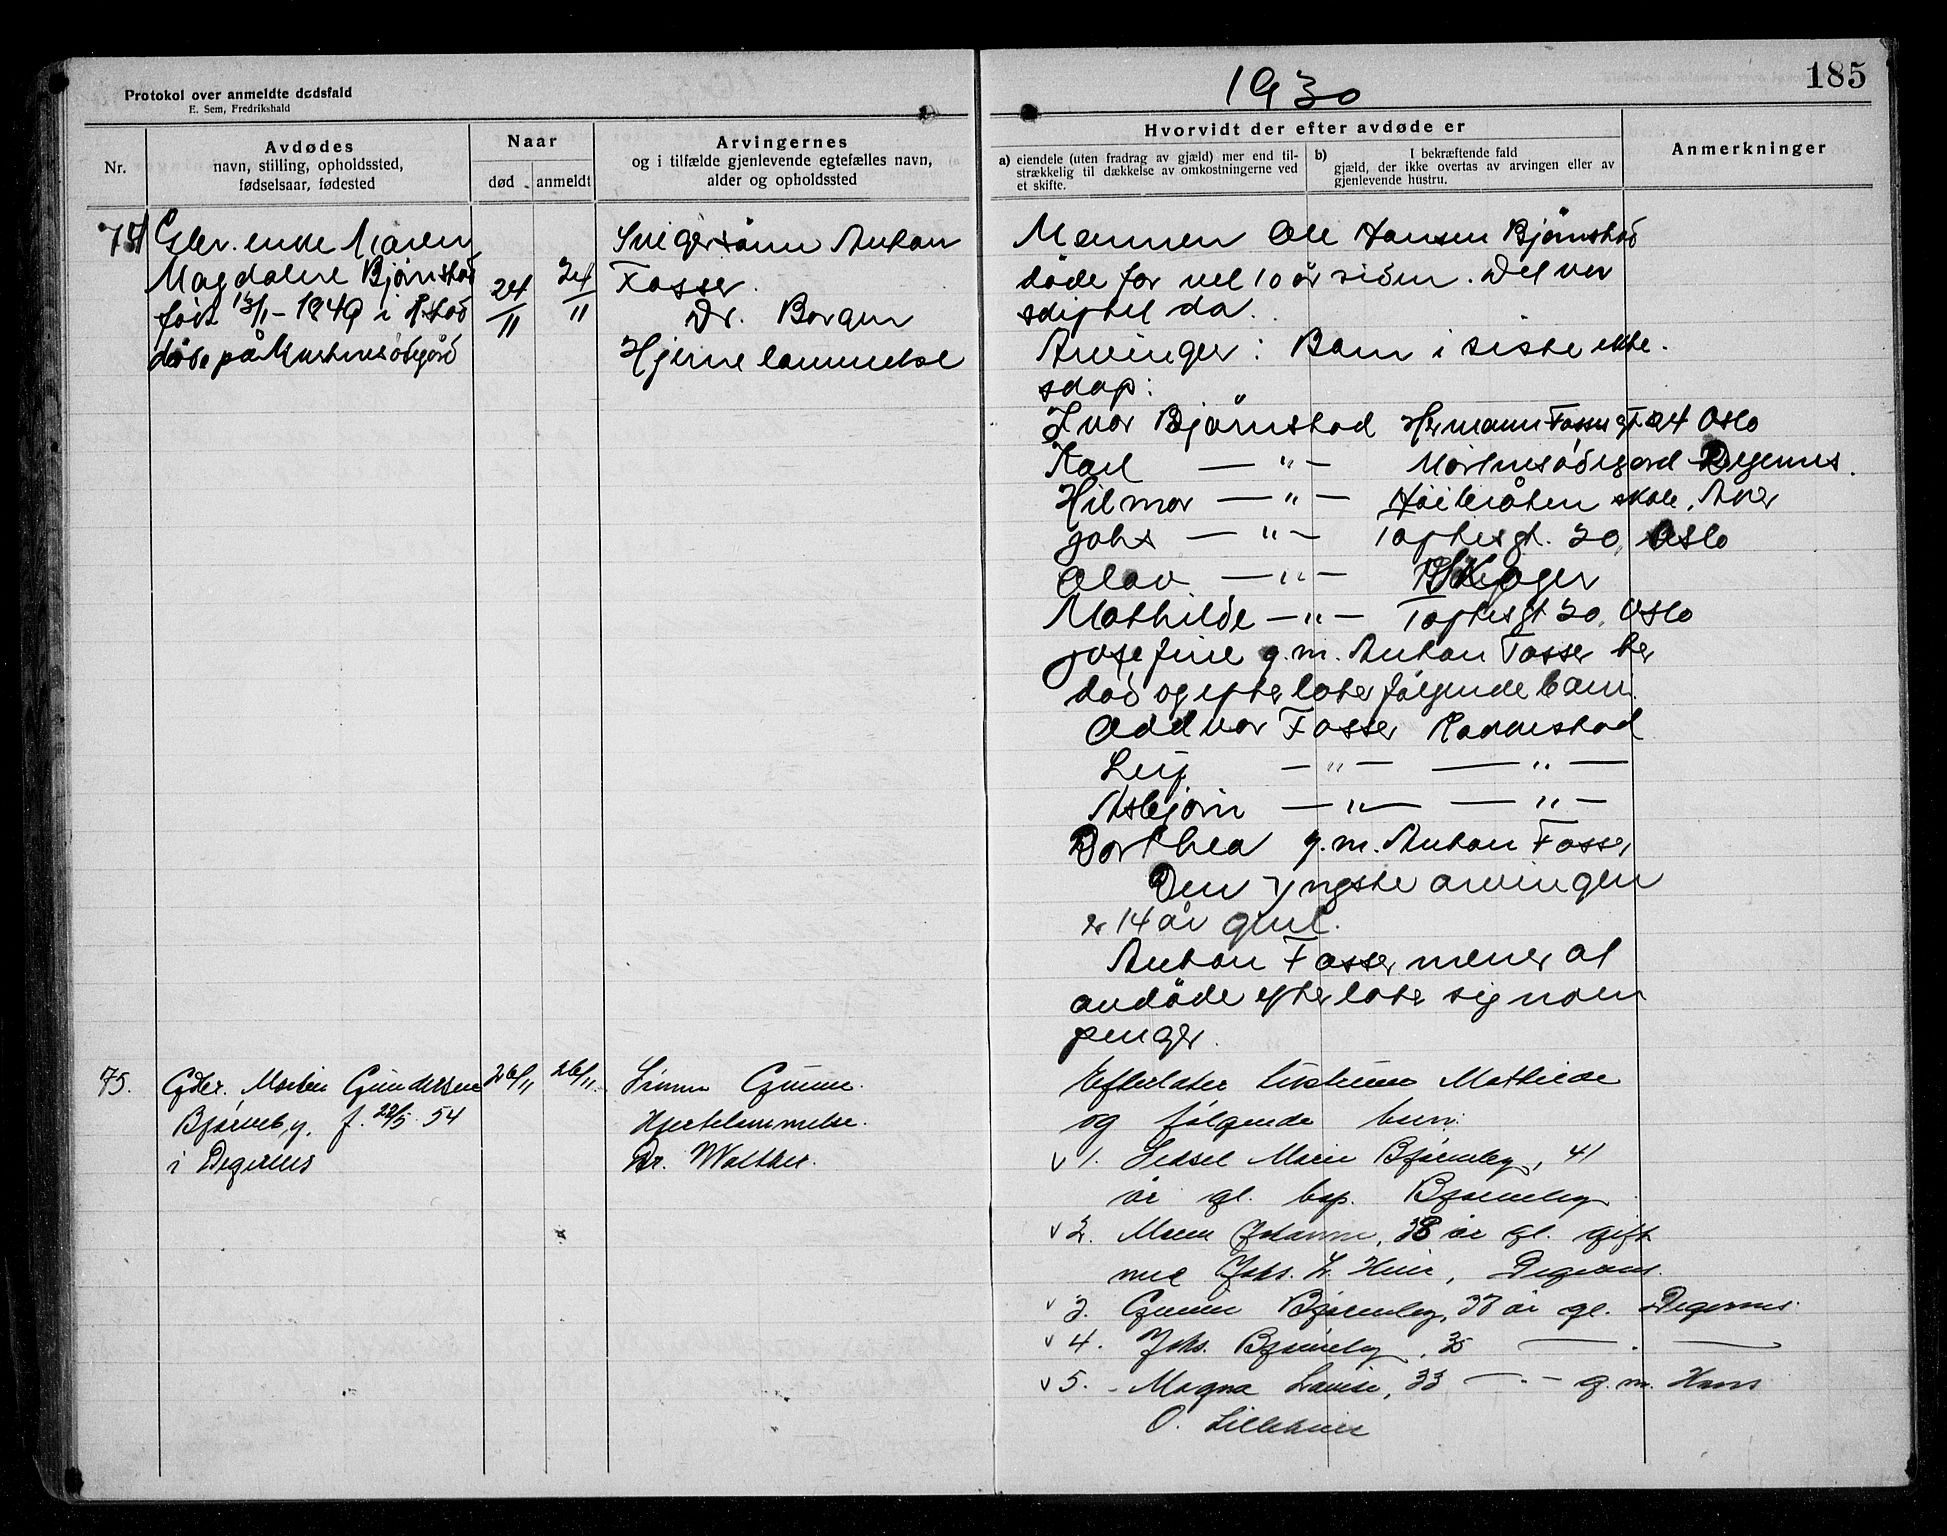 Protokol over anmeldte dødsfald
E. Sem, Fredrikshald
1930
185
Nr.
Avdødes
navn, stilling, opholdssted,
fødselsaar, fødested
Naar
død
anmeldt
Arvingernes
og i tilfælde gjenlevende egtefælles navn,
alder og opholdssted
Hvorvidt der efter avdøde er
a) eiendele (uten fradrag av gjæld) mer end til-
strækkelig til dækkelse av omkostningerne ved
et skifte.
b) I bekræftende fald
gjæld, der ikke overtas av arvingen eller av
gjenlevende hustru.
Anmerkninger
74
enke Maren
Magdalene Bjørnstad
født 1849 i
døde på Mortensødegård
24/11
24/11
Svigersønn Anton
Fosser.
Dr. Borgen
Hjerne lammelse
Mannen Ole Hansen Bjørnstad
døde for vel 10 år siden. Det var
skiftet da.
Arvinger: Barn i siste ekte-
skap:
Ivar Bjørnstad Hermann Fossgt 24 Oslo
Karl — " — Mortensødegard Degernes.
Hilmar — " — skole, Aker
Johs — " — Toftesgt. 30, Oslo
Olav — " — Skoger
Mathilde — " — Toftesgt 30, Oslo
Josefine g.m. Anton Fosser her
død og efterlater følgende barn.
Oddvar Fosser Rakkestad
Leif — " — — " —
Asbjørn — " — — " —
Dorthea g.m. Anton Fosser
Den yngste arvingen
er 14 år gml.
Anton Fosser mener at
avdøde efterlater sig noen
penger.
75.
Gder. Martin Gundersen
Bjørneby, f. 22/5 54
i Degernes
26/11
26/11
Sønn Gunnar.
Hjertelammelse.
Dr. Walther.
Efterlater hustruen Mathilde
og følgende barn:
v 1. Sidsel Marie Bjørneby, 41
år gl. bop. Bjørneby
v 2. Maren Johanne, 38 år gl. gift
med Johs. H. Heier, Degernes.
v 3. Gunnar Bjørneby, 37 år gl. Degernes.
v 4. Johs. Bjørneby, 35 — . —
v 5. Magna Lovise, 33 — . — g.m. Hans
O. Lilleheier